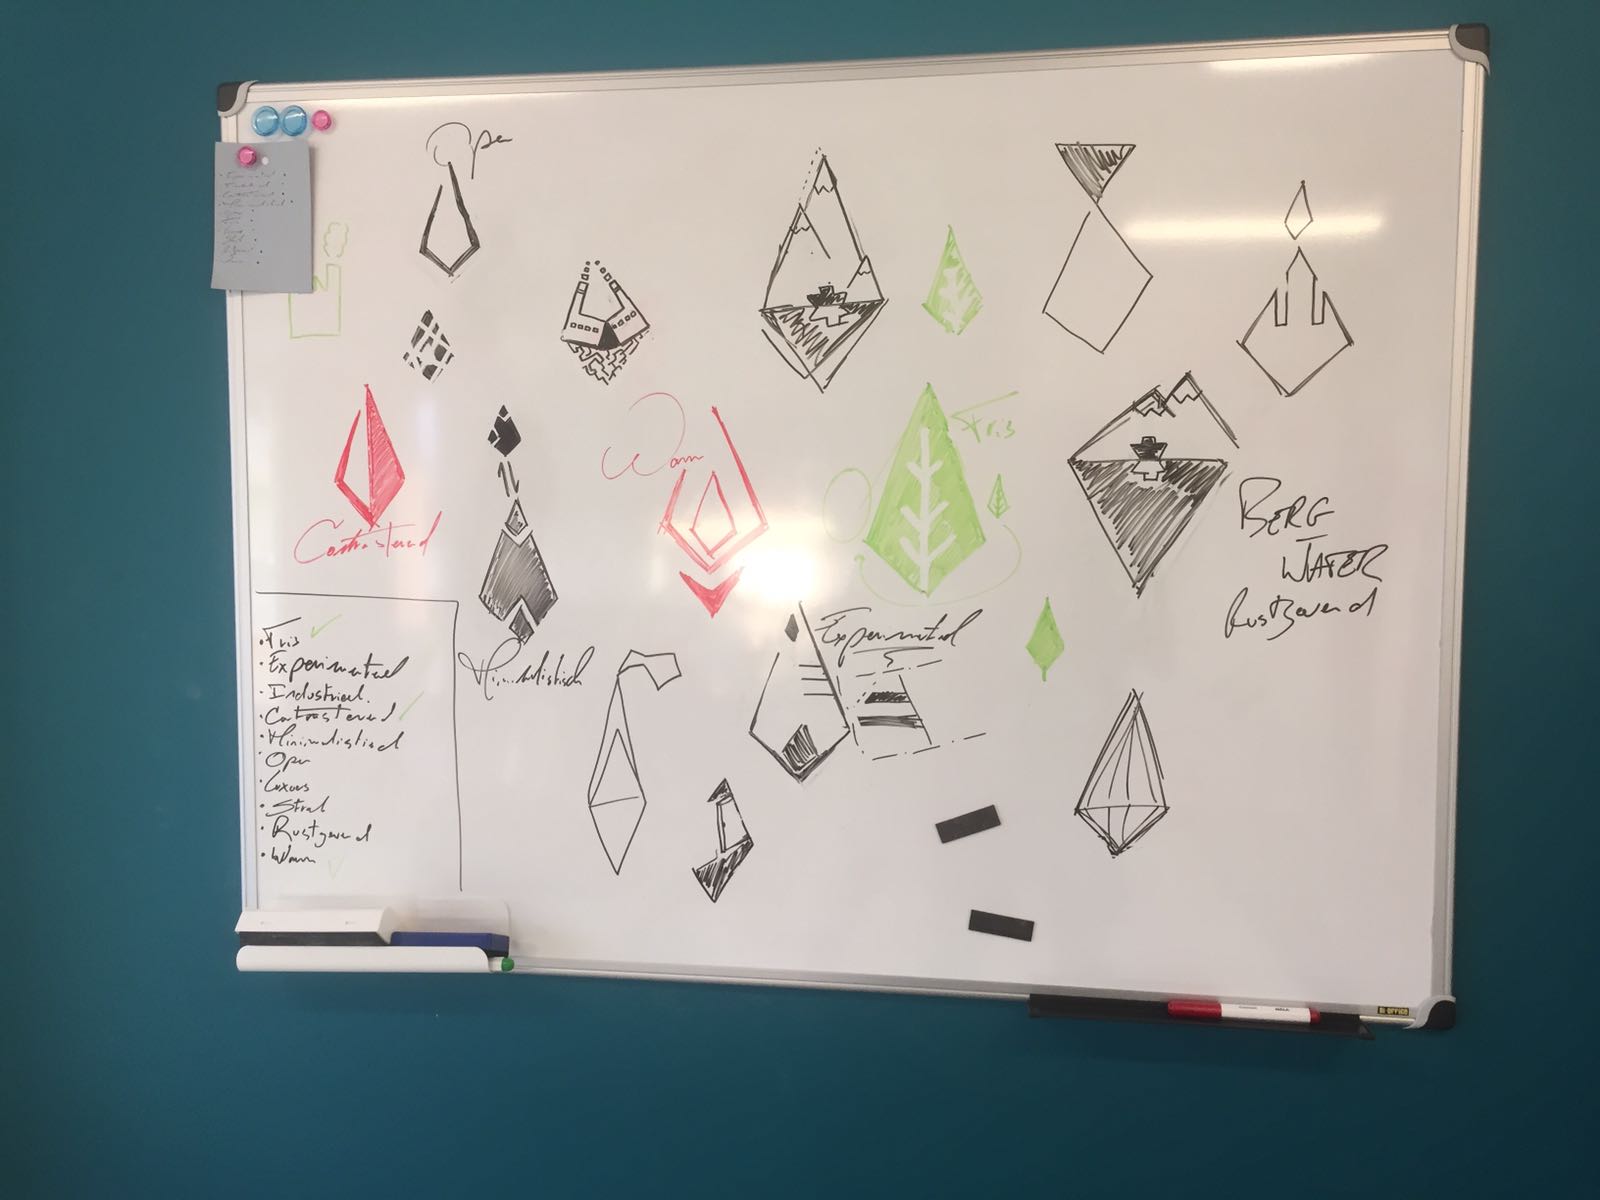 Open
Contrasterend
Warm
Fris
BERG
WATER
Rustgevend
Minimalistisch
Experimenteel
• Fris
• Experimenteel
• Industrieel.
• Contrasterend
• Minimalistisch
• Open
• Luxueus
• Strak
• Rustgevend
• Warm